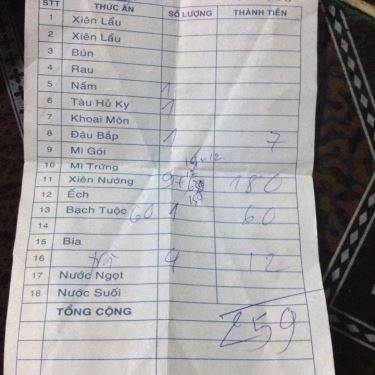 STT THỨC ĂN SỐ LƯỢNG THÀNH TIỀN
1 Xiên Lẩu
2 Xiên Lẩu
3 Bún
4 Rau
5 Nấm 1
6 Tàu Hủ Ky 1
7 Khoai Môn
8 Đậu Bắp 1 7
9 Mì Gói
10 Mì Trứng
11 Xiên Nướng 180
12 Ếch
13 Bạch Tuộc 60 1 60
14
15 Bia
16 4 12
17 Nước Ngọt
18 Nước Suối
TỔNG CỘNG 259